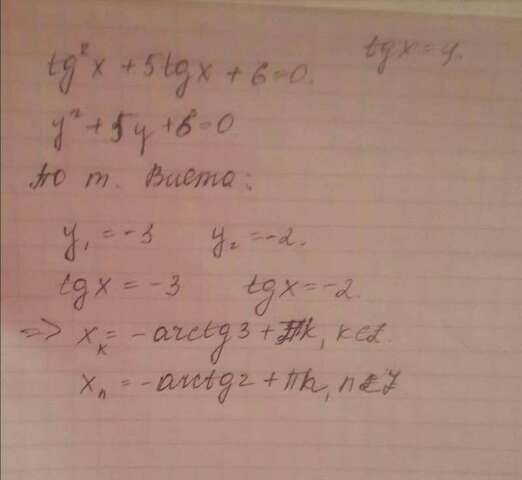 tg²x + 5tgx + 6 = 0. tgx = y.
y² + 5y + 6 = 0
по т. Виета:
y₁ = -3 y₂ = -2.
tgx = -3 tgx = -2.
=> xₖ = -arctg3 + πk, k∈Z.
xₙ = -arctg2 + πn, n∈Z